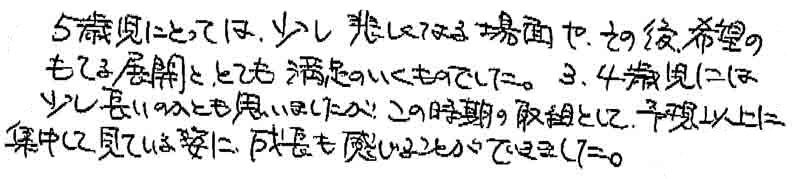 ５歳児にとっては、少し悲しくなる場面や、その後、希望の
もてる展開と、とても満足のいくものでした。３、４歳児には
少し長いのかとも思いましたが、この時期の取組として、予想以上に
集中して見ている姿に、成長も感じることができました。